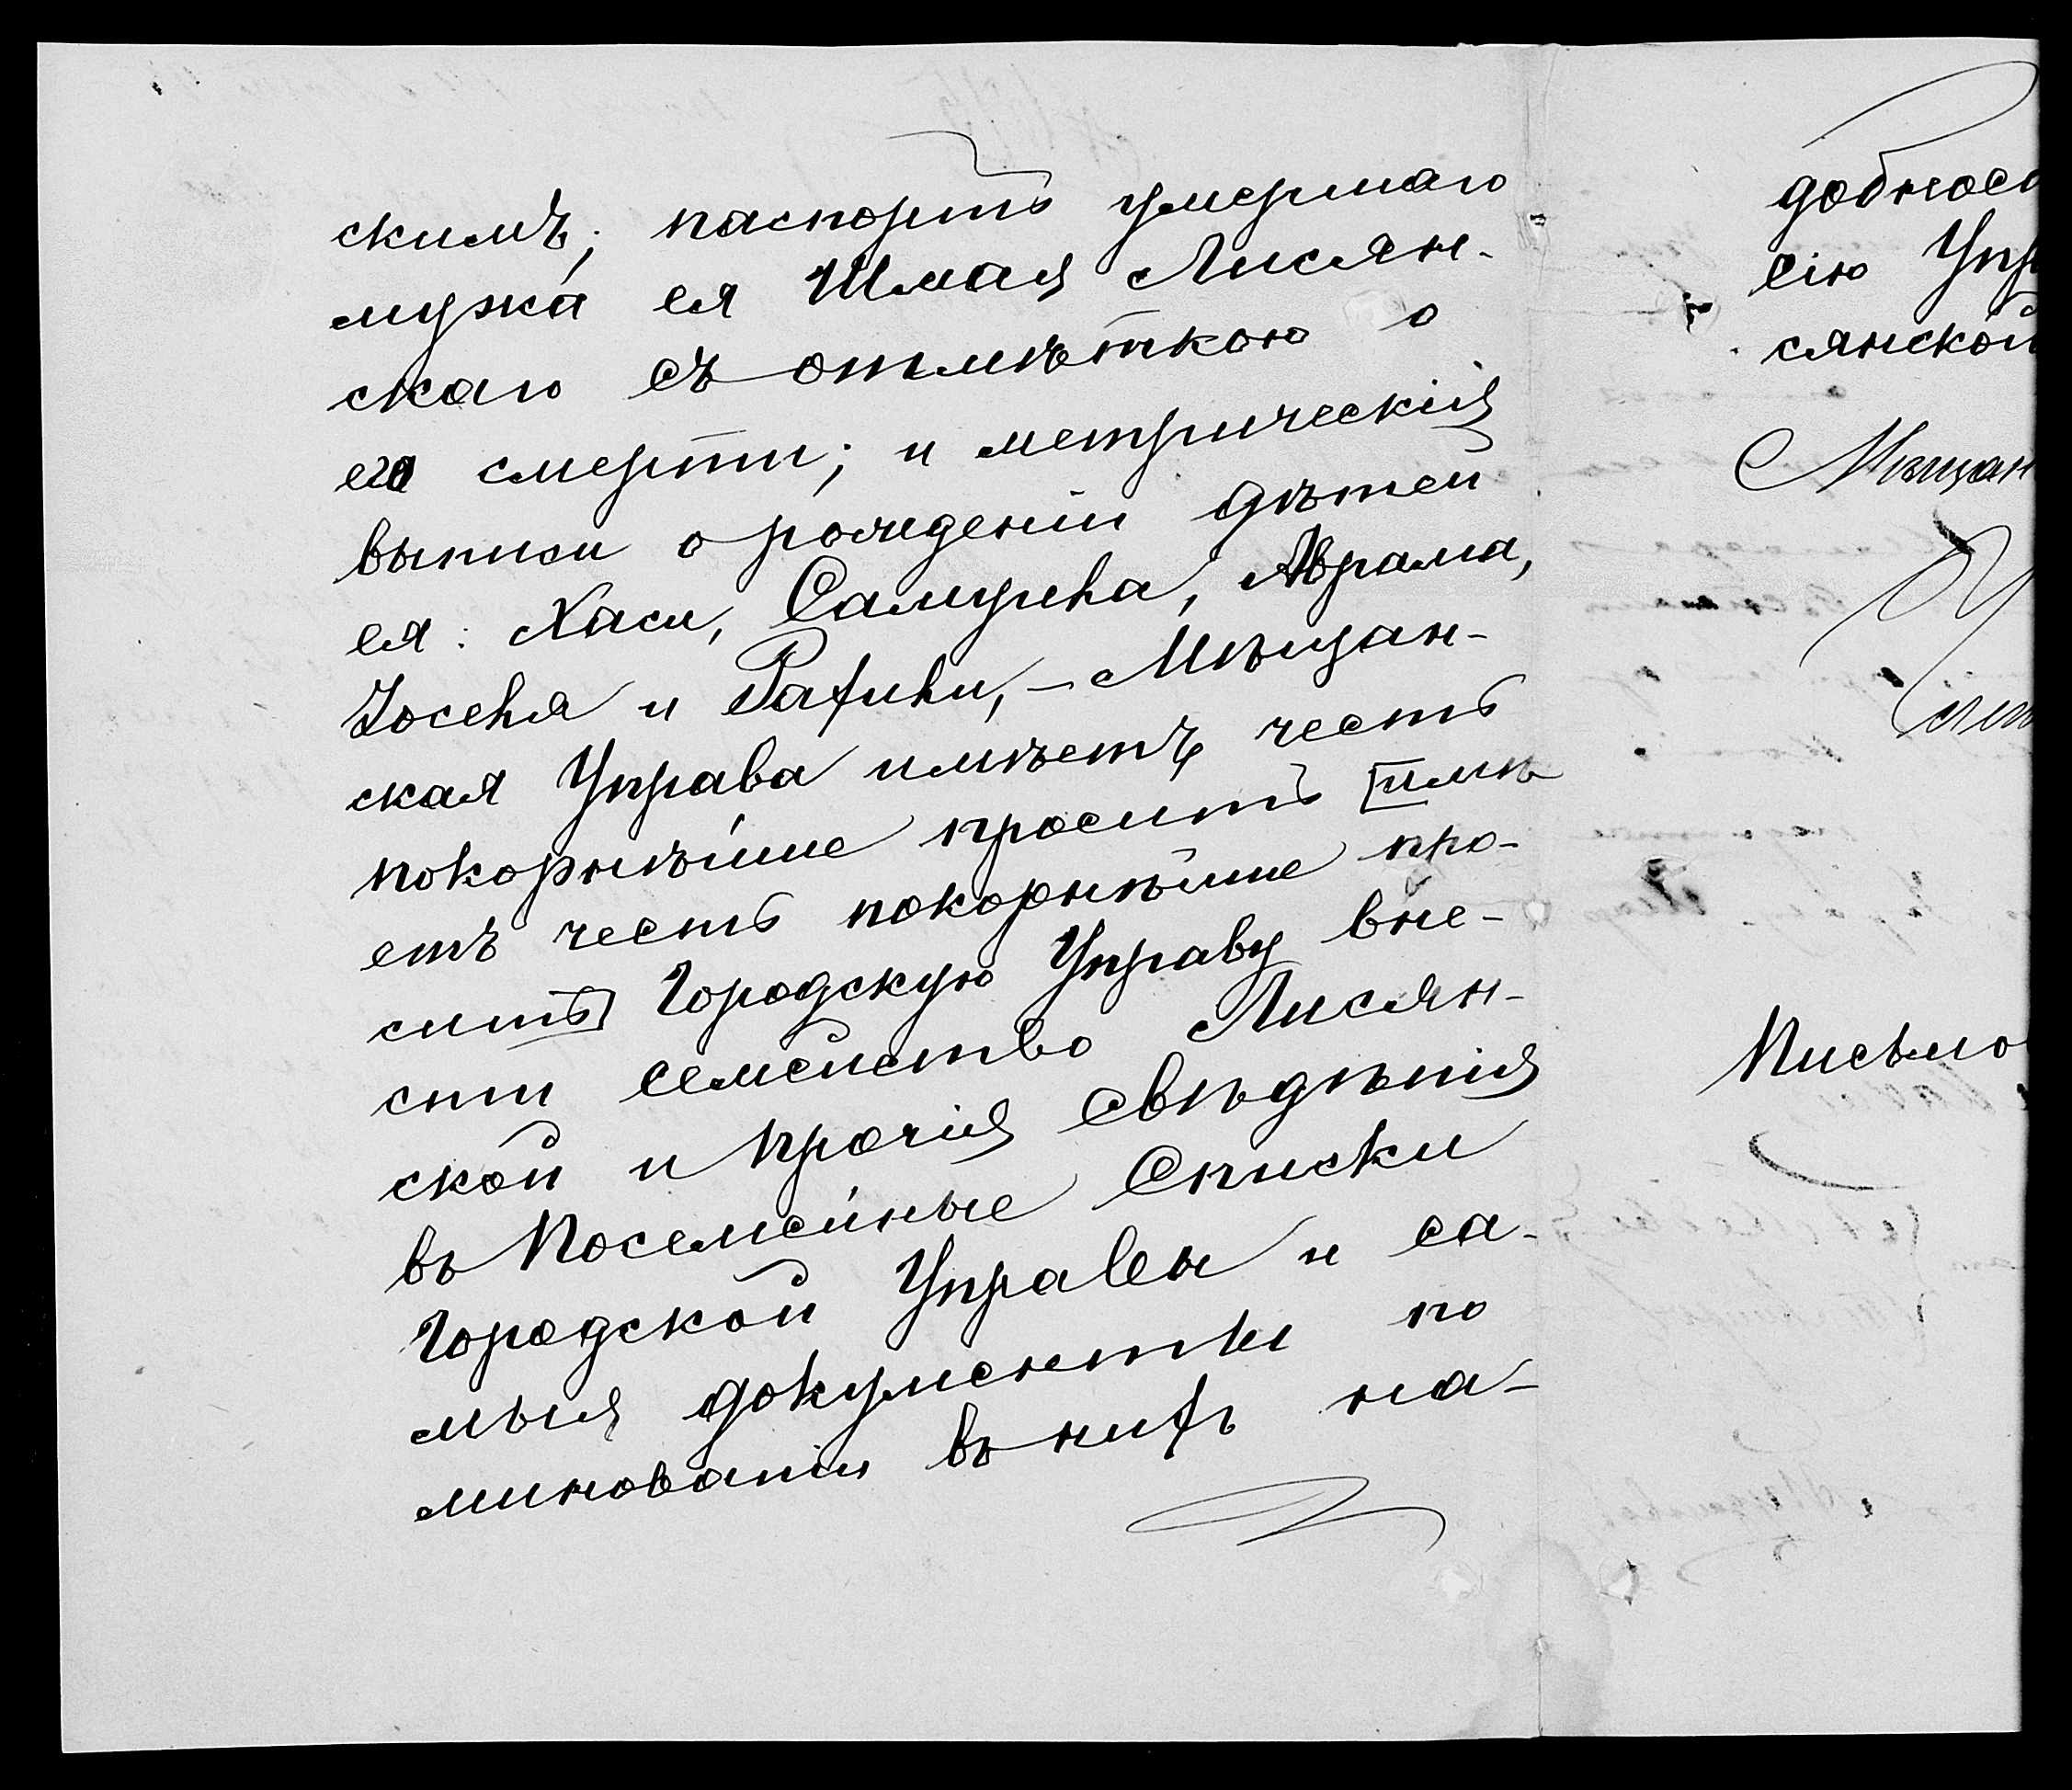 скимъ; паспортъ умершаго
мужа ея Шмая Лисян-
скаго съ отмѣткою о
его смерти; и метрическія
выписи о рожденіи дѣтей
ея: Хаси, Самуила, Аврама,
Іоселя и Рахили, – Мѣщан-
ская Управа имѣетъ честь
покорнѣйше просить [имѣ
етъ честь покорнѣйше про-
сить] Городскую Управу вне-
сти семейство Лисян-
ской и прочія свѣдѣнія
въ Посемейные Списки
Городской Управы и са-
мыя документы по
минованіи въ нихъ на-
добнос
сію Упр
сянской
Мѣщан
Письмо